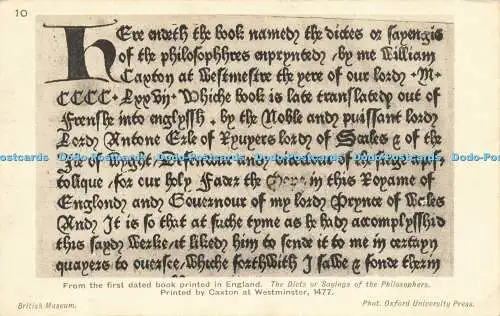 10
Here endeth the book named the dictes or sayengis
of the philosophhres enprynted, by me William
Caxton at Westmestre the yere of our lord ·M·
CCCC·Lxxvij· Whiche book is late translated out of
Frenshe into englyssh, by the Noble and puissant lord
Lord Antone Erle of Ryuyers lord of Scales & of the
Ile of Wyght, Defendour and directour of the siege apos
tolique, for our holy Fader the Pope in this Royame of
Englond and Gouernour of my lord Prynce of Wales
And It is so that at suche tyme as he had accomplysshid
this sayd Werke, it liked him to sende it to me in certayn
quayers to ouersee, Whiche forthwith I sawe & fonde therin
From the first dated book printed in England. The Dicts or Sayings of the Philosophers.
Printed by Caxton at Westminster, 1477.
British Museum.
Phot. Oxford University Press.
Dodo-Postcards